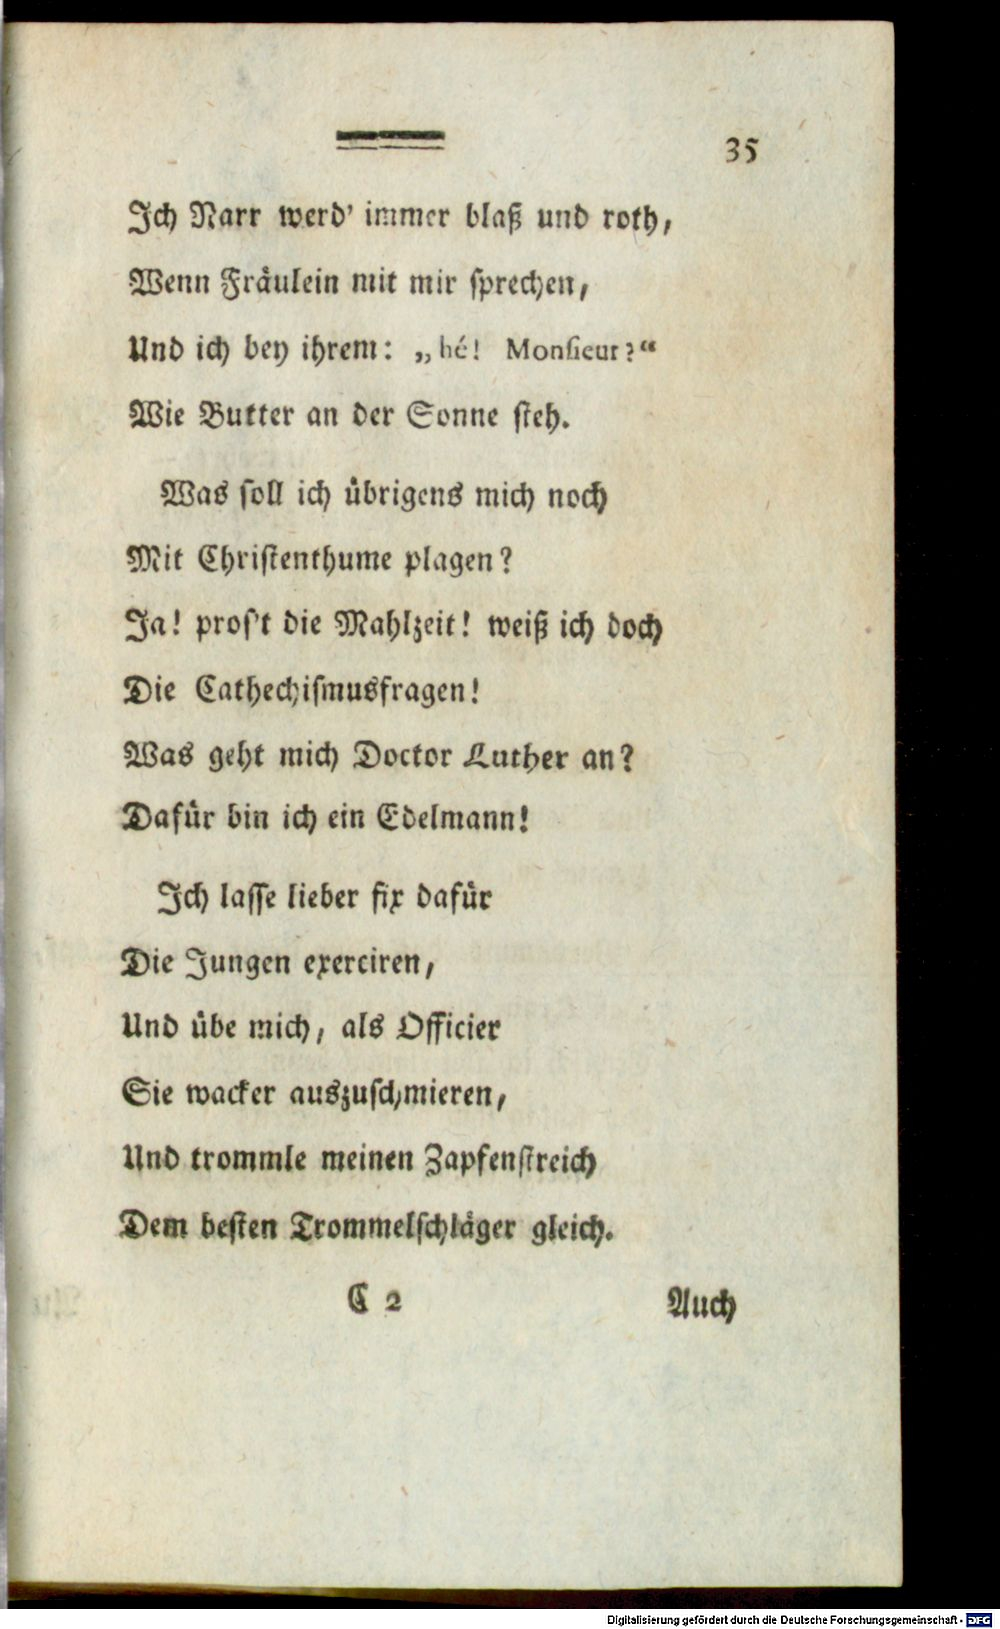 35
Ich Narr werd' immer blaß und roth,
Wenn Fräulein mit mir sprechen,
Und ich bey ihrem: „hé! Monsieur?“
Wie Butter an der Sonne steh.
Was soll ich übrigens mich noch
Mit Christenthume plagen?
Ja! pros't die Mahlzeit! weiß ich doch
Die Cathechismusfragen!
Was geht mich Doctor Luther an?
Dafür bin ich ein Edelmann!
Ich lasse lieber fix dafür
Die Jungen exerciren,
Und übe mich, als Officier
Sie wacker auszuschmieren,
Und trommle meinen Zapfenstreich
Dem besten Trommelschläger gleich.
C 2 Auch
Digitalisierung gefördert durch die Deutsche Forschungsgemeinschaft - DFG